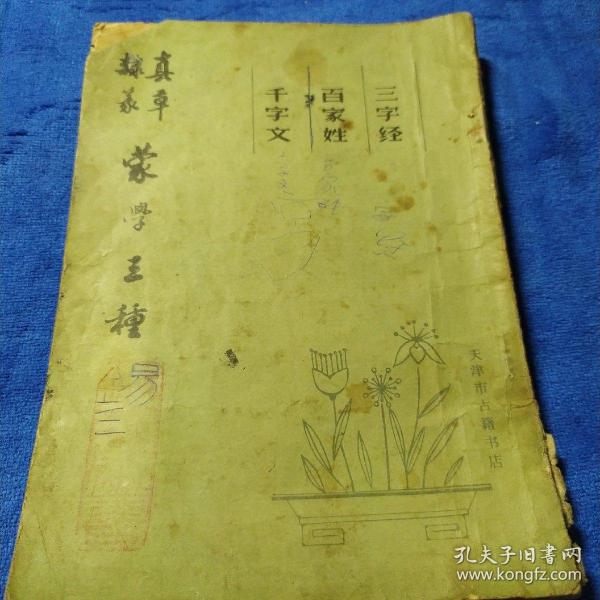 三字经
百家姓
千字文
真草
隸篆
蒙學三種
天津市古籍书店
孔夫子旧书网
www.kongfz.com